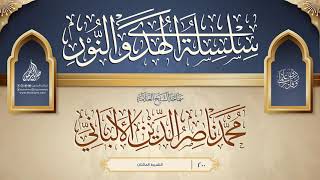 سلسلة الهدى والنور
سماحة الشيخ العلامة
محمد ناصر الدين الألباني
٢٠٠
الشريط المائتان